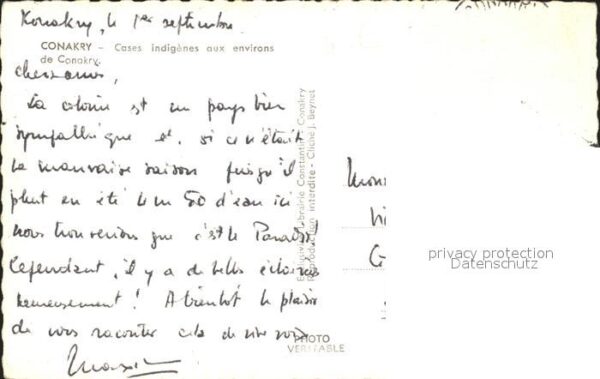 Konakry, le 1er septembre
CONAKRY – Cases indigènes aux environs
de Conakry.
chers amis,
La colonie est un pays bien
sympathique et, si ce n'était
la mauvaise saison puisqu'il
pleut en été 4m 50 d'eau ici
nous trouverions que c'est le Paradis.
Cependant, il y a de belles éclaircies
heureusement! A bientôt le plaisir
de vous raconter cela de vive voix
Librairie Constantin - Conakry
Reproduction interdite - Cliché J. Beynet
PHOTO
VERITABLE
privacy protection
Datenschutz